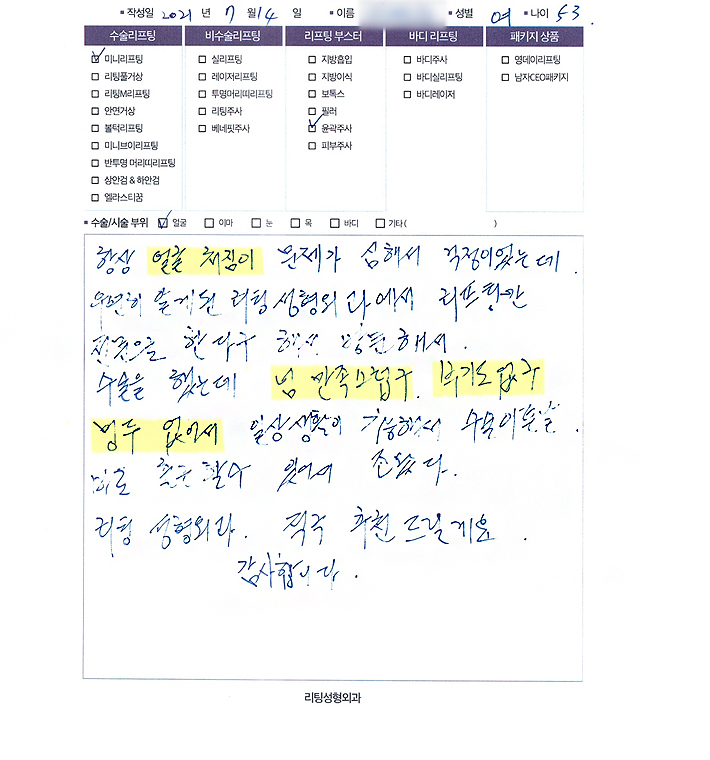 ▪ 작성일 2021 년 7 월 14 일 ▪ 이름 ▪ 성별 여 ▪ 나이 53
수술리프팅 비수술리프팅 리프팅 부스터 바디 리프팅 패키지 상품
미니리프팅 실리프팅 지방흡입 바디주사 영데이리프팅
리팅풀거상 레이저리프팅 지방이식 바디실리프팅 남자CEO패키지
리팅M리프팅 투명머리띠리프팅 보톡스 바디레이저
안면거상 리팅주사 필러
볼턱리프팅 베네핏주사 윤곽주사
미니브이리프팅 피부주사
반투명 머리띠리프팅
상안검 & 하안검
엘라스티꿈
▪ 수술/시술 부위 얼굴 이마 눈 목 바디 기타( )
항상 얼굴 처짐이 문제가 심해서 걱정이었는데.
우연히 알게된 리팅성형외과에서 리프팅만
한다구 해서 방문해서.
수술을 했는데 넘 만족스럽구. 부기도 없구
멍두 없어서 일상생활이 가능해서 수술이튿날.
바로 출근할수 있어서 좋았다.
리팅 성형외과. 적극 추천드릴게요.
감사합니다.
리팅성형외과